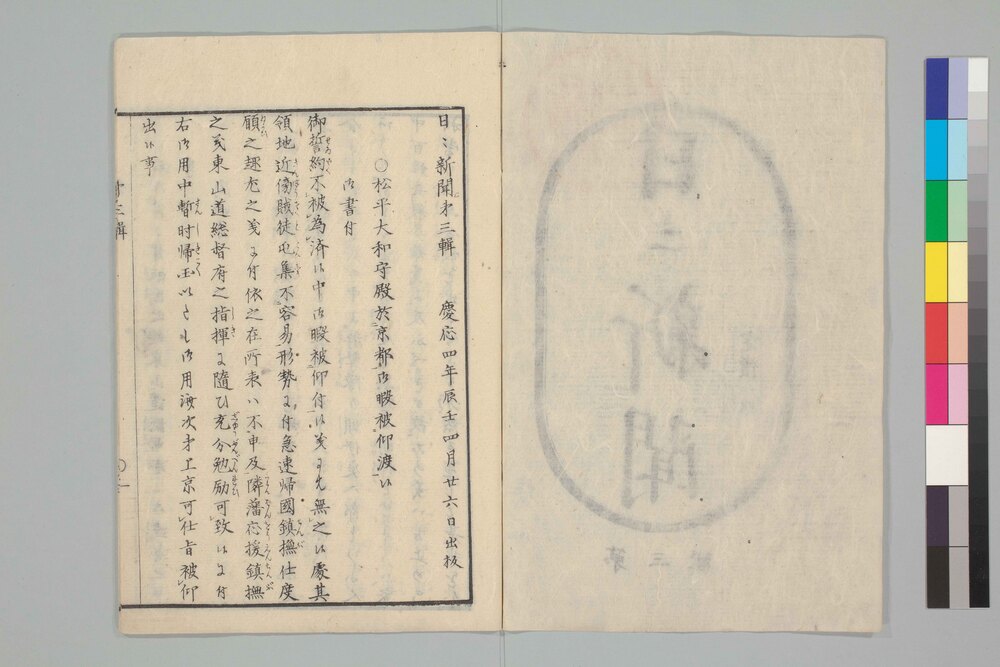 日々新聞第三輯　慶応四年辰壬四月廿六日出板
○松平大和守殿於京都御暇被仰渡候
御書付
御誓約不被為済候中御暇被仰付候義ニ者無之候處其
領地近傍賊徒屯集不容易形勢ニ付急速帰國鎮撫仕度
願之趣尤之義ニ付依之在所表ハ不申及隣藩応援鎮撫
之義東山道総督府之指揮ニ隨ひ充分勉励可致候に付
右御用中暫時帰国いたし御用済次才上京可仕旨被仰
出候事